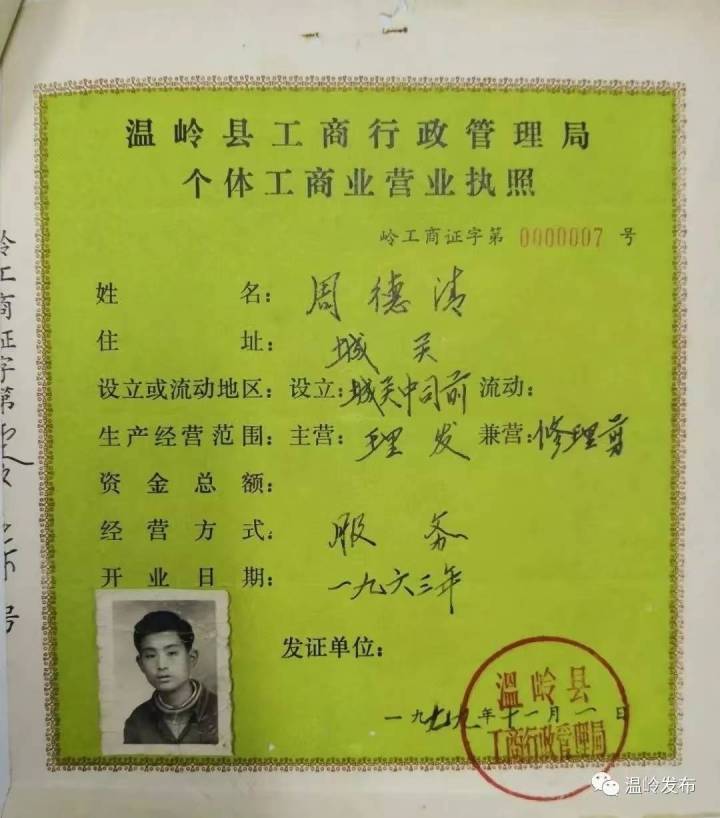 温岭县工商行政管理局
个体工商业营业执照
岭工商证字第 0000007 号
姓 名：周德清
住 址：城关
设立或流动地区：设立：城关中司前 流动：
生产经营范围：主营：理发 兼营：修理剪
资金总额：
经营方式：服务
开业日期：一九六三年
发证单位：
一九七九年十一月一日
温岭县
工商行政管理局
岭工商证字第
号
温岭发布